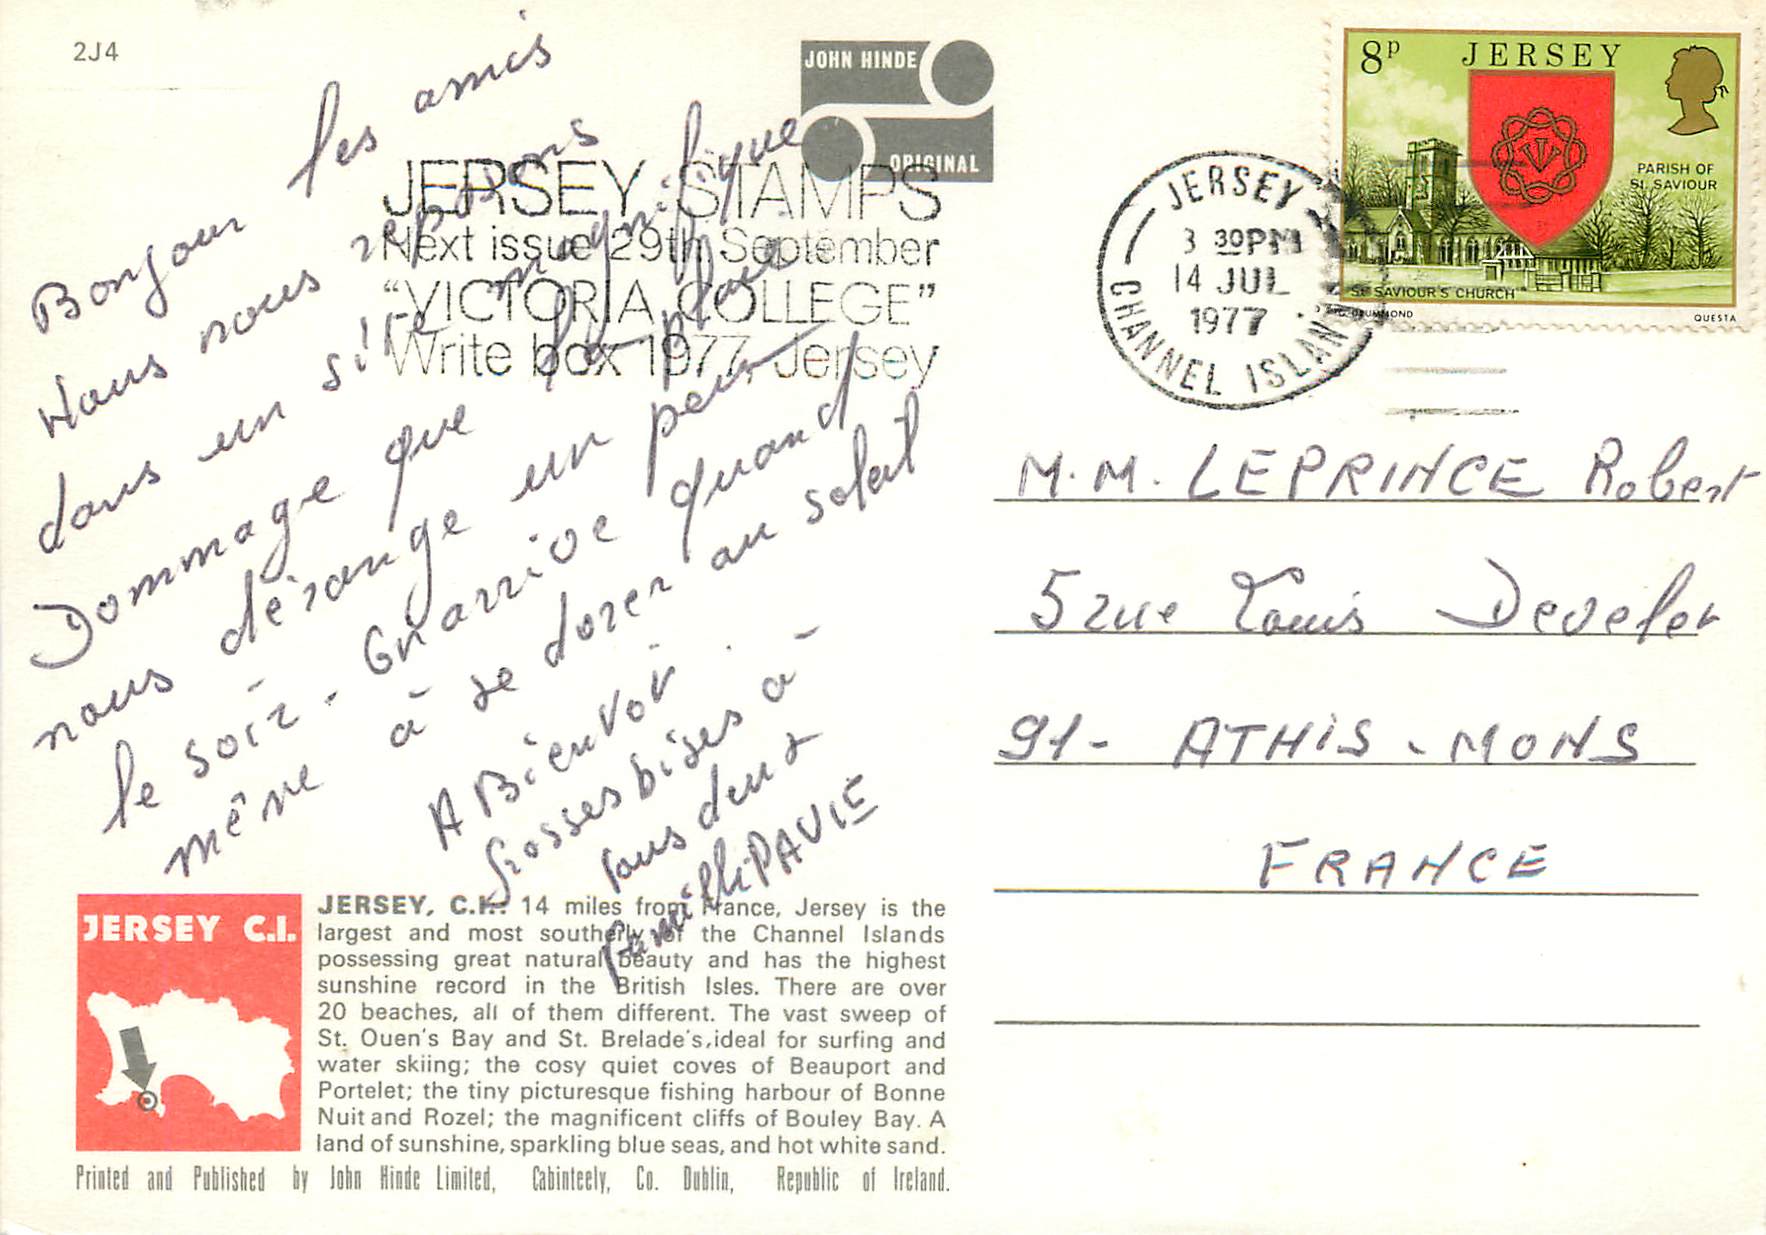 2J4
Bonjour les amis
Nous nous reposons
dans un site magnifique
Dommage que la pluie
nous dérange un peu
le soir. On arrive quand
même à se dorer au soleil
A Bientôt.
Grosses bises à
tous deux
famille PAVIE
JOHN HINDE
ORIGINAL
JERSEY STAMPS
Next issue 29th September
"VICTORIA COLLEGE"
Write box 1977, Jersey
JERSEY
3 30PM
14 JUL
1977
CHANNEL ISLAN
8P JERSEY
PARISH OF
ST. SAVIOUR
ST SAVIOUR'S CHURCH
QUESTA
M.M. LEPRINCE Robert
5 rue Louis
91- ATHIS-MONS
FRANCE
JERSEY C.I.
JERSEY, C.I.: 14 miles from France, Jersey is the
largest and most southerly of the Channel Islands
possessing great natural beauty and has the highest
sunshine record in the British Isles. There are over
20 beaches, all of them different. The vast sweep of
St. Ouen's Bay and St. Brelade's, ideal for surfing and
water skiing; the cosy quiet coves of Beauport and
Portelet; the tiny picturesque fishing harbour of Bonne
Nuit and Rozel; the magnificent cliffs of Bouley Bay. A
land of sunshine, sparkling blue seas, and hot white sand.
Printed and Published by John Hinde Limited, Cabinteely, Co. Dublin, Republic of Ireland.